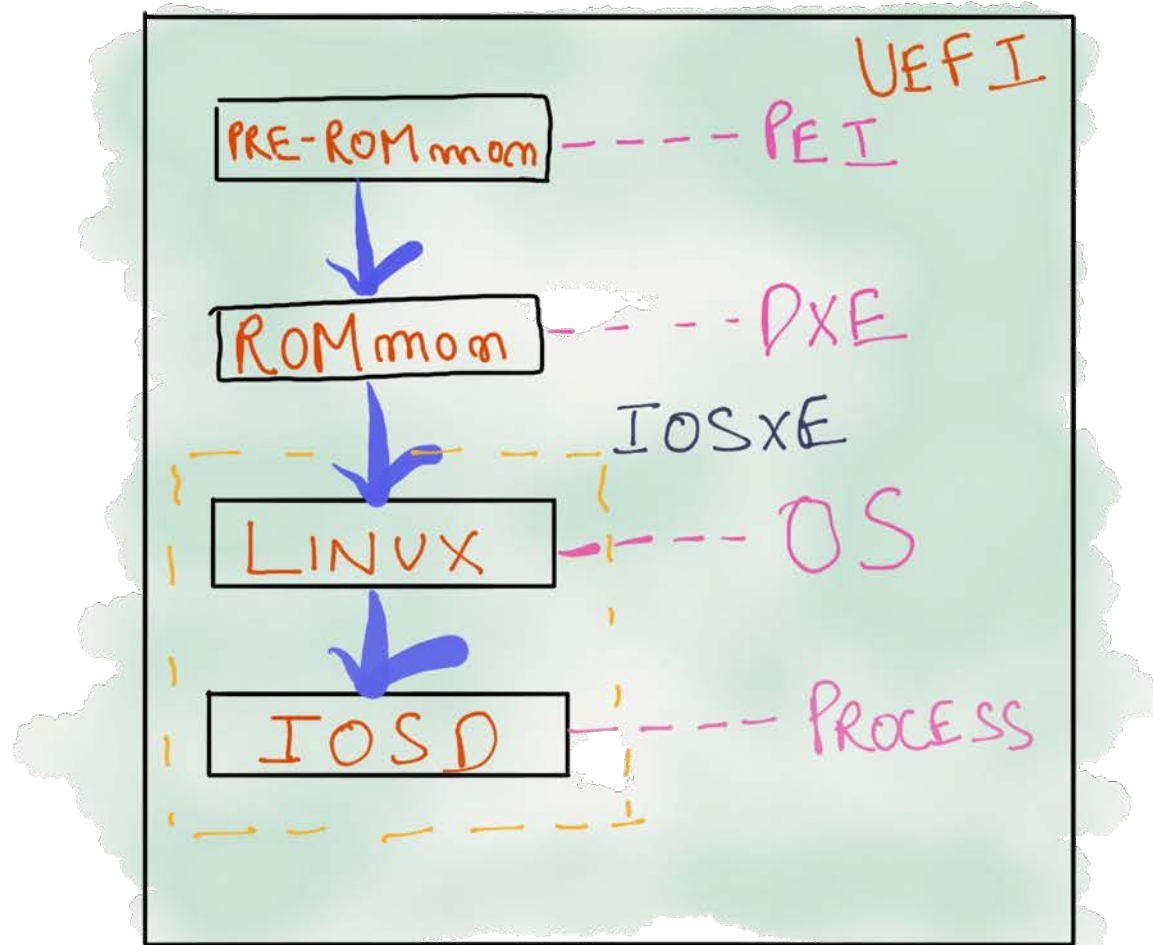 UEFI
PRE-ROMmon
PEI
ROMmon
DXE
IOSXE
LINUX
OS
IOSD
PROCESS